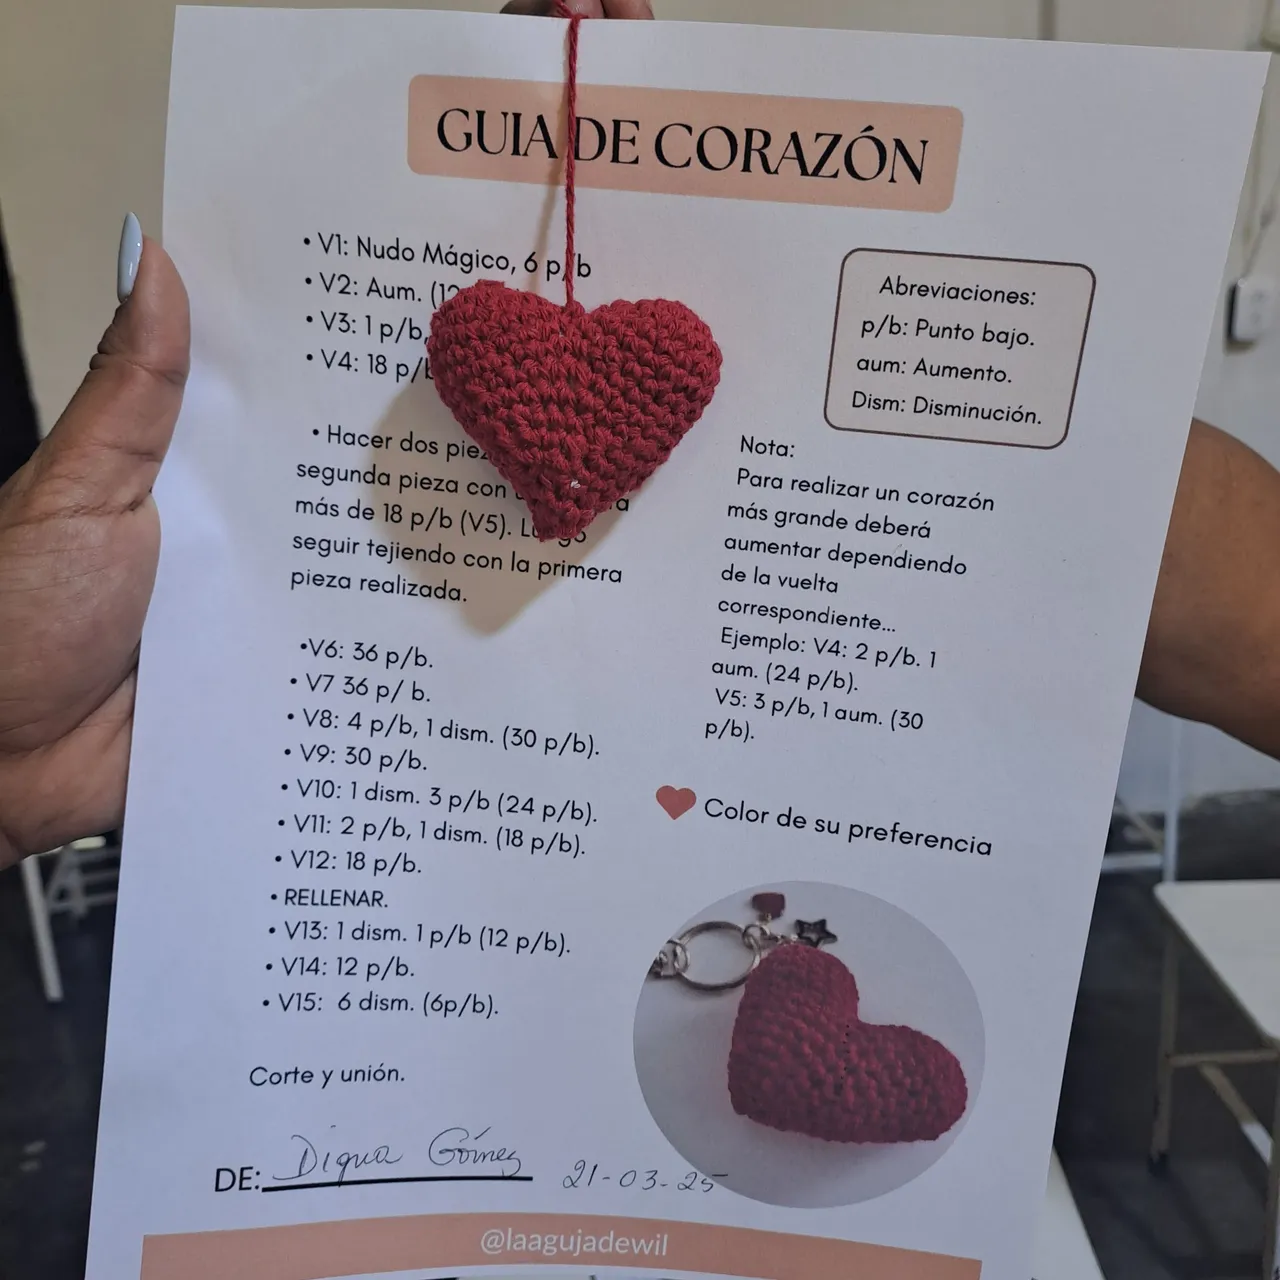 GUIA DE CORAZÓN
• V1: Nudo Mágico, 6 p/b
• V2: Aum. (12
• V3: 1 p/b,
• V4: 18 p/b
• Hacer dos
segunda pieza con
más de 18 p/b (V5). Luego
seguir tejiendo con la primera
pieza realizada.
•V6: 36 p/b.
• V7 36 p/ b.
• V8: 4 p/b, 1 dism. (30 p/b).
• V9: 30 p/b.
• V10: 1 dism. 3 p/b (24 p/b).
• V11: 2 p/b, 1 dism. (18 p/b).
• V12: 18 p/b.
• RELLENAR.
• V13: 1 dism. 1 p/b (12 p/b).
• V14: 12 p/b.
• V15: 6 dism. (6p/b).
Corte y unión.
Abreviaciones:
p/b: Punto bajo.
aum: Aumento.
Dism: Disminución.
Nota:
Para realizar un corazón
más grande deberá
aumentar dependiendo
de la vuelta
correspondiente...
Ejemplo: V4: 2 p/b. 1
aum. (24 p/b).
V5: 3 p/b, 1 aum. (30
p/b).
Color de su preferencia
DE: Digna Gómez 21-03-25
@laagujadewil